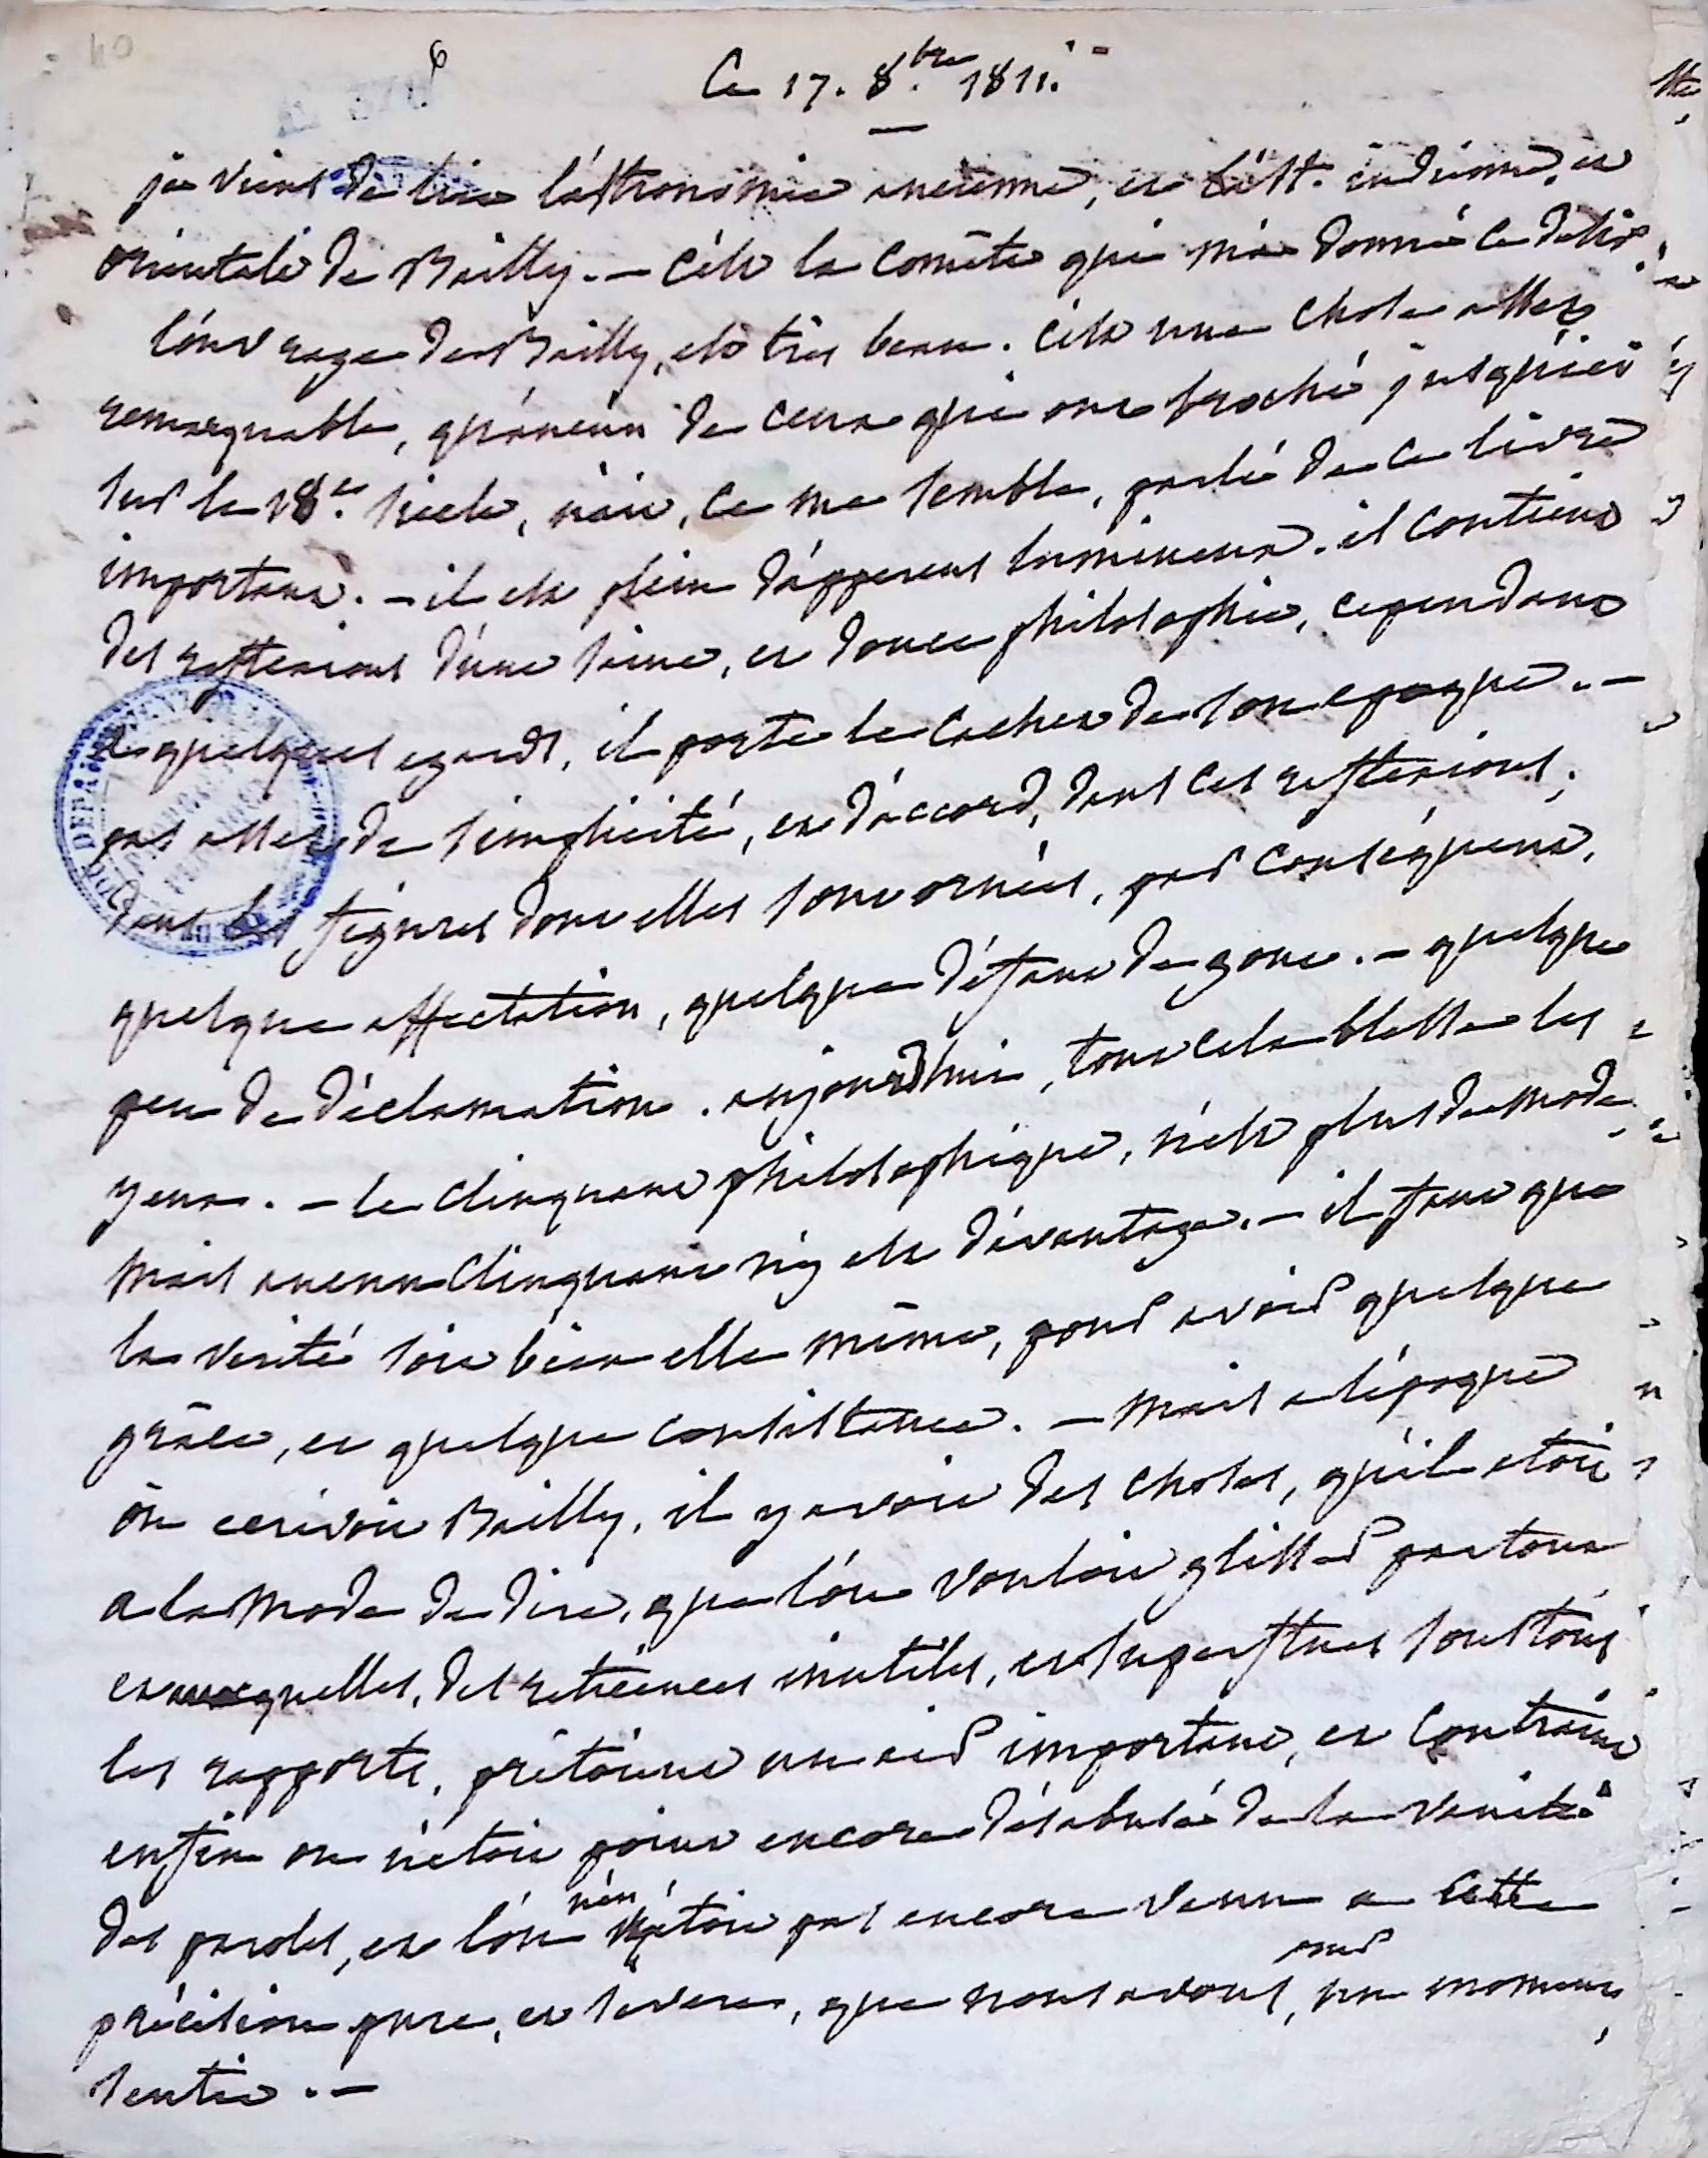 40
6
Ce 17. 8.bre 1811.
je viens de lire l'astronomie ancienne, et l'ast. indienne, et
orientale de Bailly. – c'est la comète qui m'a donné ce desir.
l'ouvrage de Bailly, est très beau. c'est une chose assez
remarquable, qu'aucun de ceux qui ont broché jusqu'ici
sur le 18.e siecle, n'ait, ce me semble, parlé de ce livre
important. – il est plein d'apperçus lumineux. il contient
des reflexions d'une saine, et douce philosophie, cependant
a quelques egards, il porte le cachet de son epoque. –
pas assez de simplicité, et d'accord, dans ces reflexions;
dans les figures dont elles sont ornées, par conséquent,
quelque affectation, quelque défaut de gout. – quelque
peu de déclamation. aujourd'hui, tout cela blesse les
yeux. – le clinquant philosophique, n'est plus de mode,
mais aucun clinquant n'y est d'avantage. – il faut que
la verité soit bien elle même, pour avoir quelque
grâce, et quelque consistance. – mais a l'époque
ou ecrivoit Bailly, il y avoit des choses, qu'il etoit
a la mode de dire, que l'on vouloit glisser partout
et auxquelles, des reticences inutiles, et superflues sous tous
les rapports, prêtoient un air important, et contraint
enfin on n'etoit point encore désabusé de la vanité
des paroles, et l'on n'en étoit pas encore venu a cette
précision pure, et severe, que nous avons, pour un moment
sentie. –
DEPARTEMENT